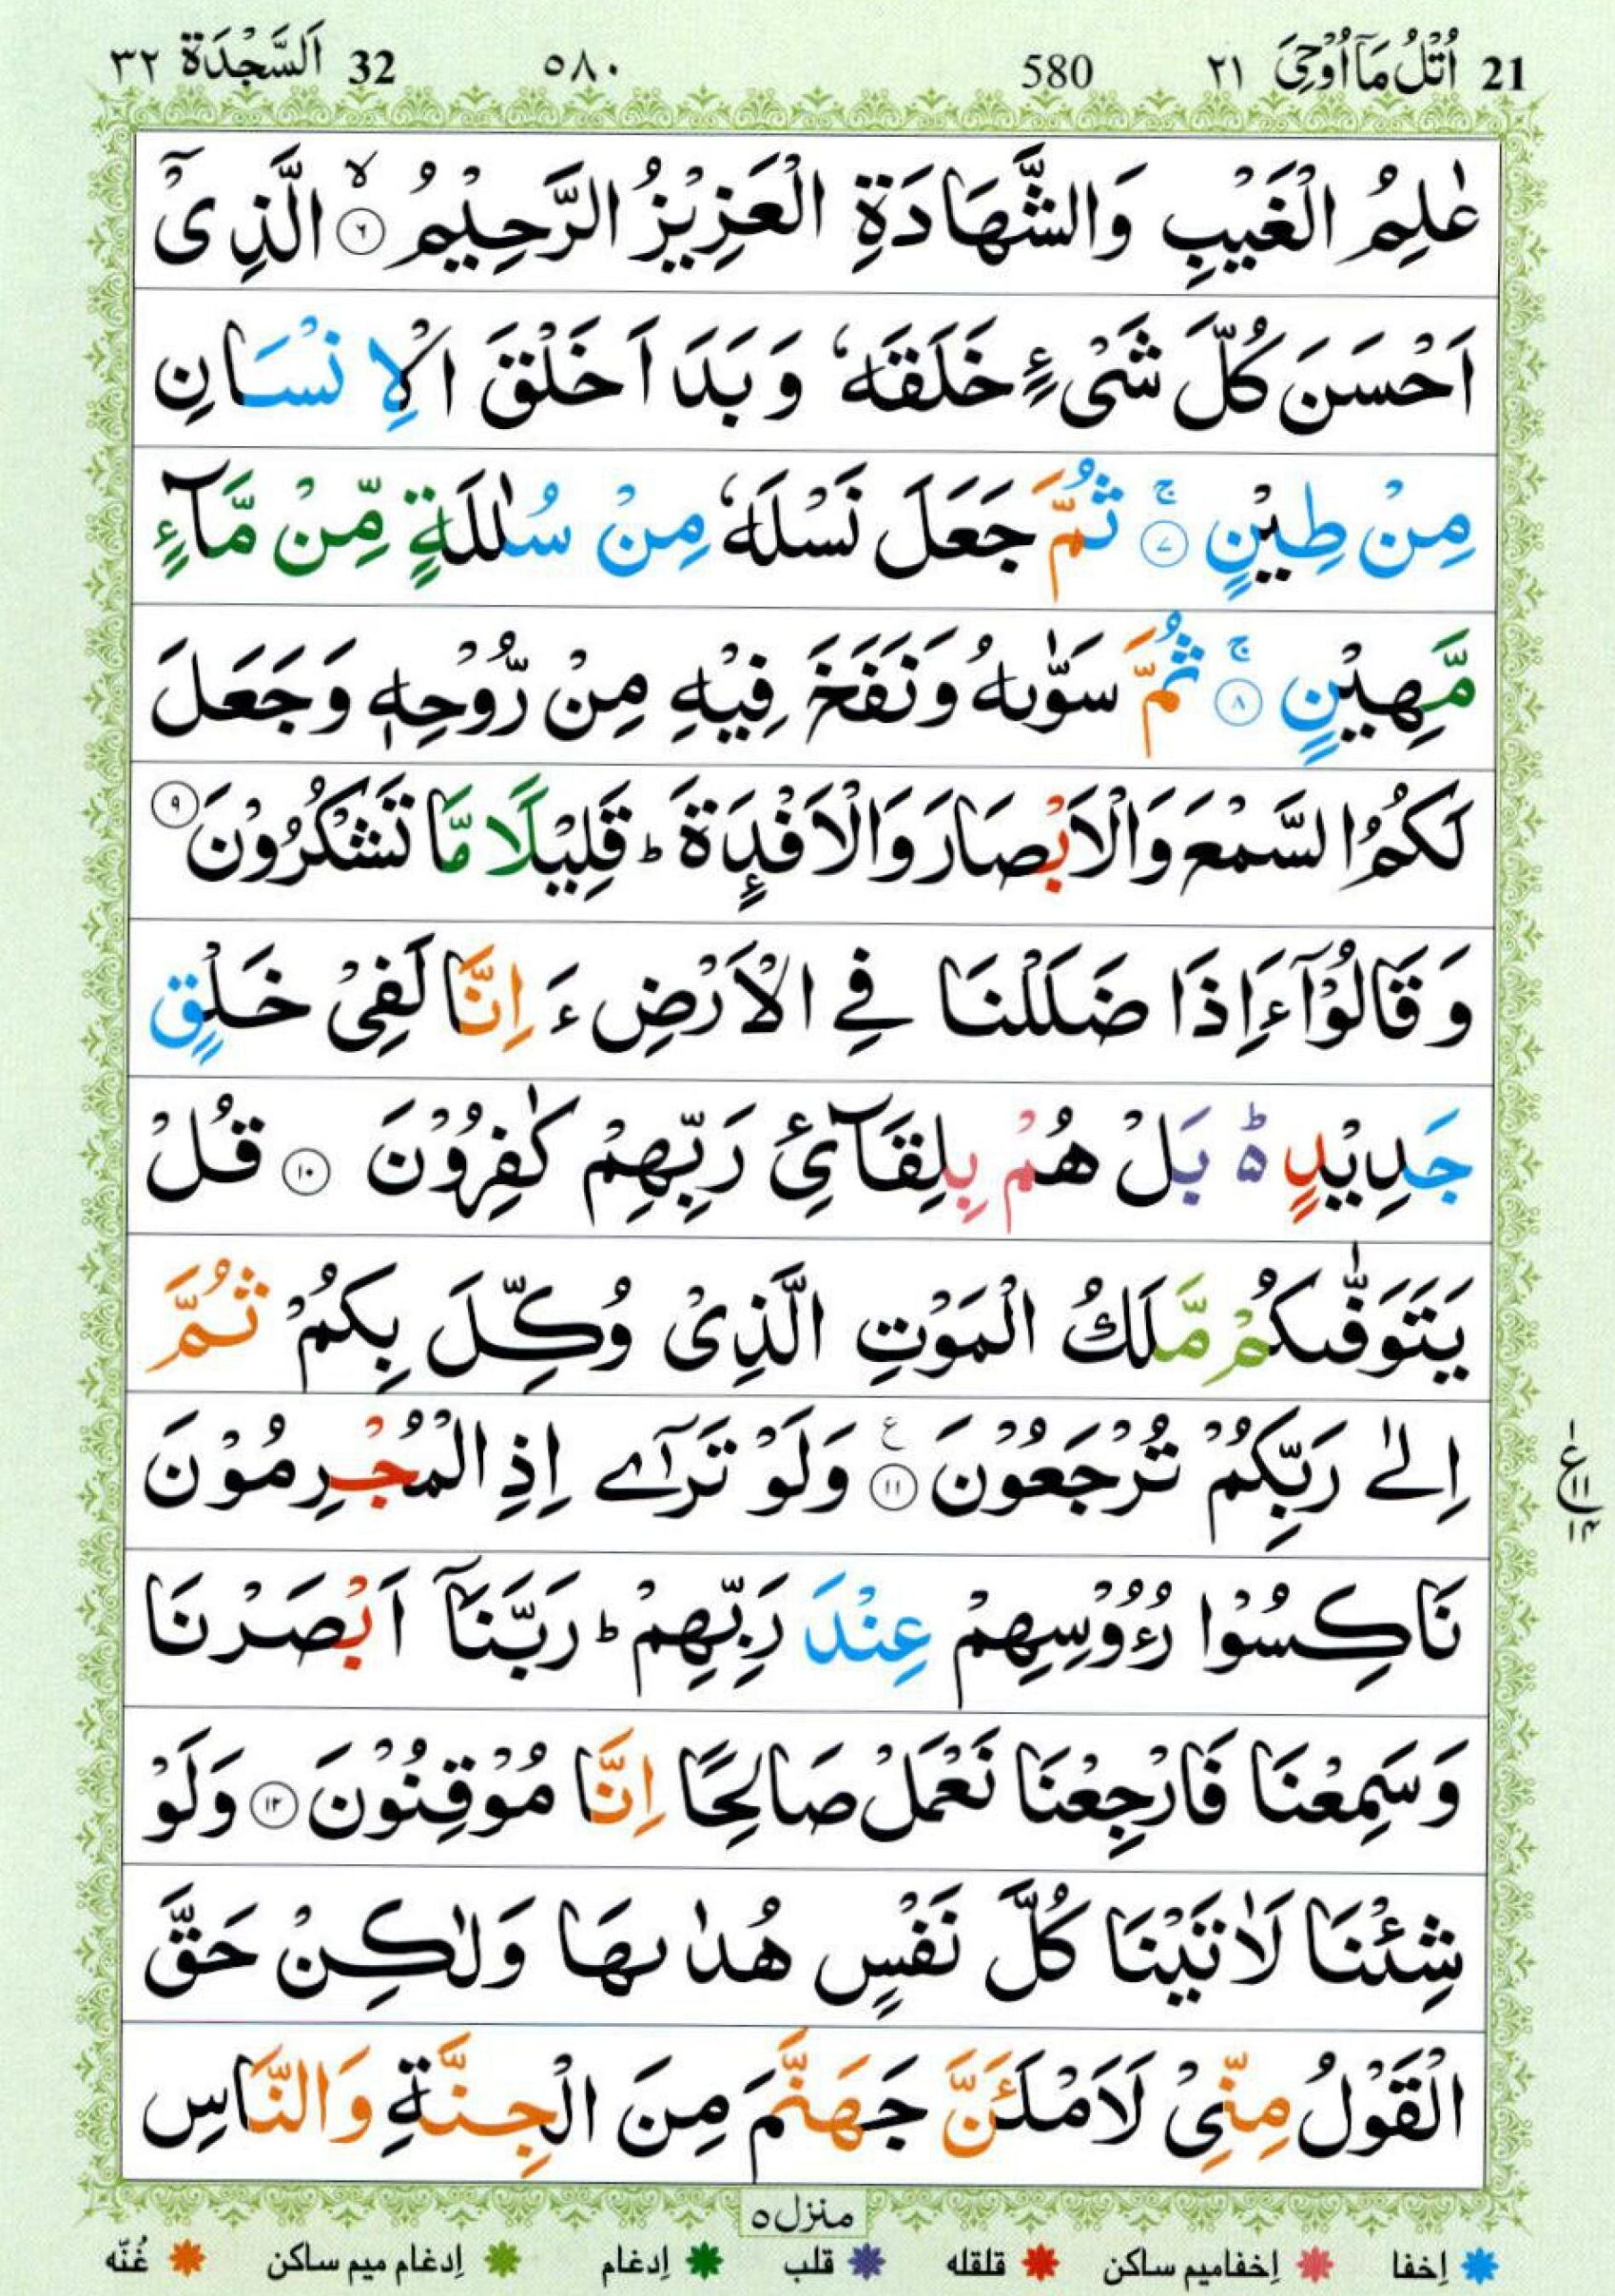 21 اُتْلُ مَآ اُوْحِیَ ٢١ 580 ٥٨٠ 32 اَلسَّجْدَة ٣٢
عٰلِمُ الْغَیْبِ وَالشَّهَادَةِ الْعَزِیْزُ الرَّحِیْمُ ۙ‏﴿٦﴾ الَّذِیْۤ
اَحْسَنَ كُلَّ شَیْءٍ خَلَقَهٗ وَ بَدَاَ خَلْقَ الْاِنْسَانِ
مِنْ طِیْنٍ ۚ‏﴿٧﴾ ثُمَّ جَعَلَ نَسْلَهٗ مِنْ سُلٰلَةٍ مِّنْ مَّآءٍ
مَّهِیْنٍ ۚ‏﴿٨﴾ ثُمَّ سَوّٰىهُ وَنَفَخَ فِیْهِ مِنْ رُّوْحِهٖ وَجَعَلَ
لَكُمُ السَّمْعَ وَالْاَبْصَارَ وَالْاَفْـِٕدَةَ ؕ قَلِیْلًا مَّا تَشْكُرُوْنَ ﴿٩﴾
وَ قَالُوْۤا ءَاِذَا ضَلَلْنَا فِی الْاَرْضِ ءَ اِنَّا لَفِیْ خَلْقٍ
جَدِیْدٍ ۬ؕ بَلْ هُمْ بِلِقَآئِ رَبِّهِمْ كٰفِرُوْنَ ﴿١٠﴾ قُلْ
یَتَوَفّٰىكُمْ مَّلَكُ الْمَوْتِ الَّذِیْ وُكِّلَ بِكُمْ ثُمَّ
اِلٰی رَبِّكُمْ تُرْجَعُوْنَ ﴿١١﴾ ع وَلَوْ تَرٰۤی اِذِ الْمُجْرِمُوْنَ
ع ١١ ١٤
نَاكِسُوْا رُءُوْسِهِمْ عِنْدَ رَبِّهِمْ ؕ رَبَّنَاۤ اَبْصَرْنَا
وَسَمِعْنَا فَارْجِعْنَا نَعْمَلْ صَالِحًا اِنَّا مُوْقِنُوْنَ ﴿١٢﴾ وَلَوْ
شِئْنَا لَاٰتَیْنَا كُلَّ نَفْسٍ هُدٰىهَا وَلٰكِنْ حَقَّ
الْقَوْلُ مِنِّیْ لَاَمْلَـَٔنَّ جَهَنَّمَ مِنَ الْجِنَّةِ وَالنَّاسِ
منزل ٥
اِخفا اِخفامیم ساكن قلقله قلب اِدغام اِدغام میم ساكن غُنّه